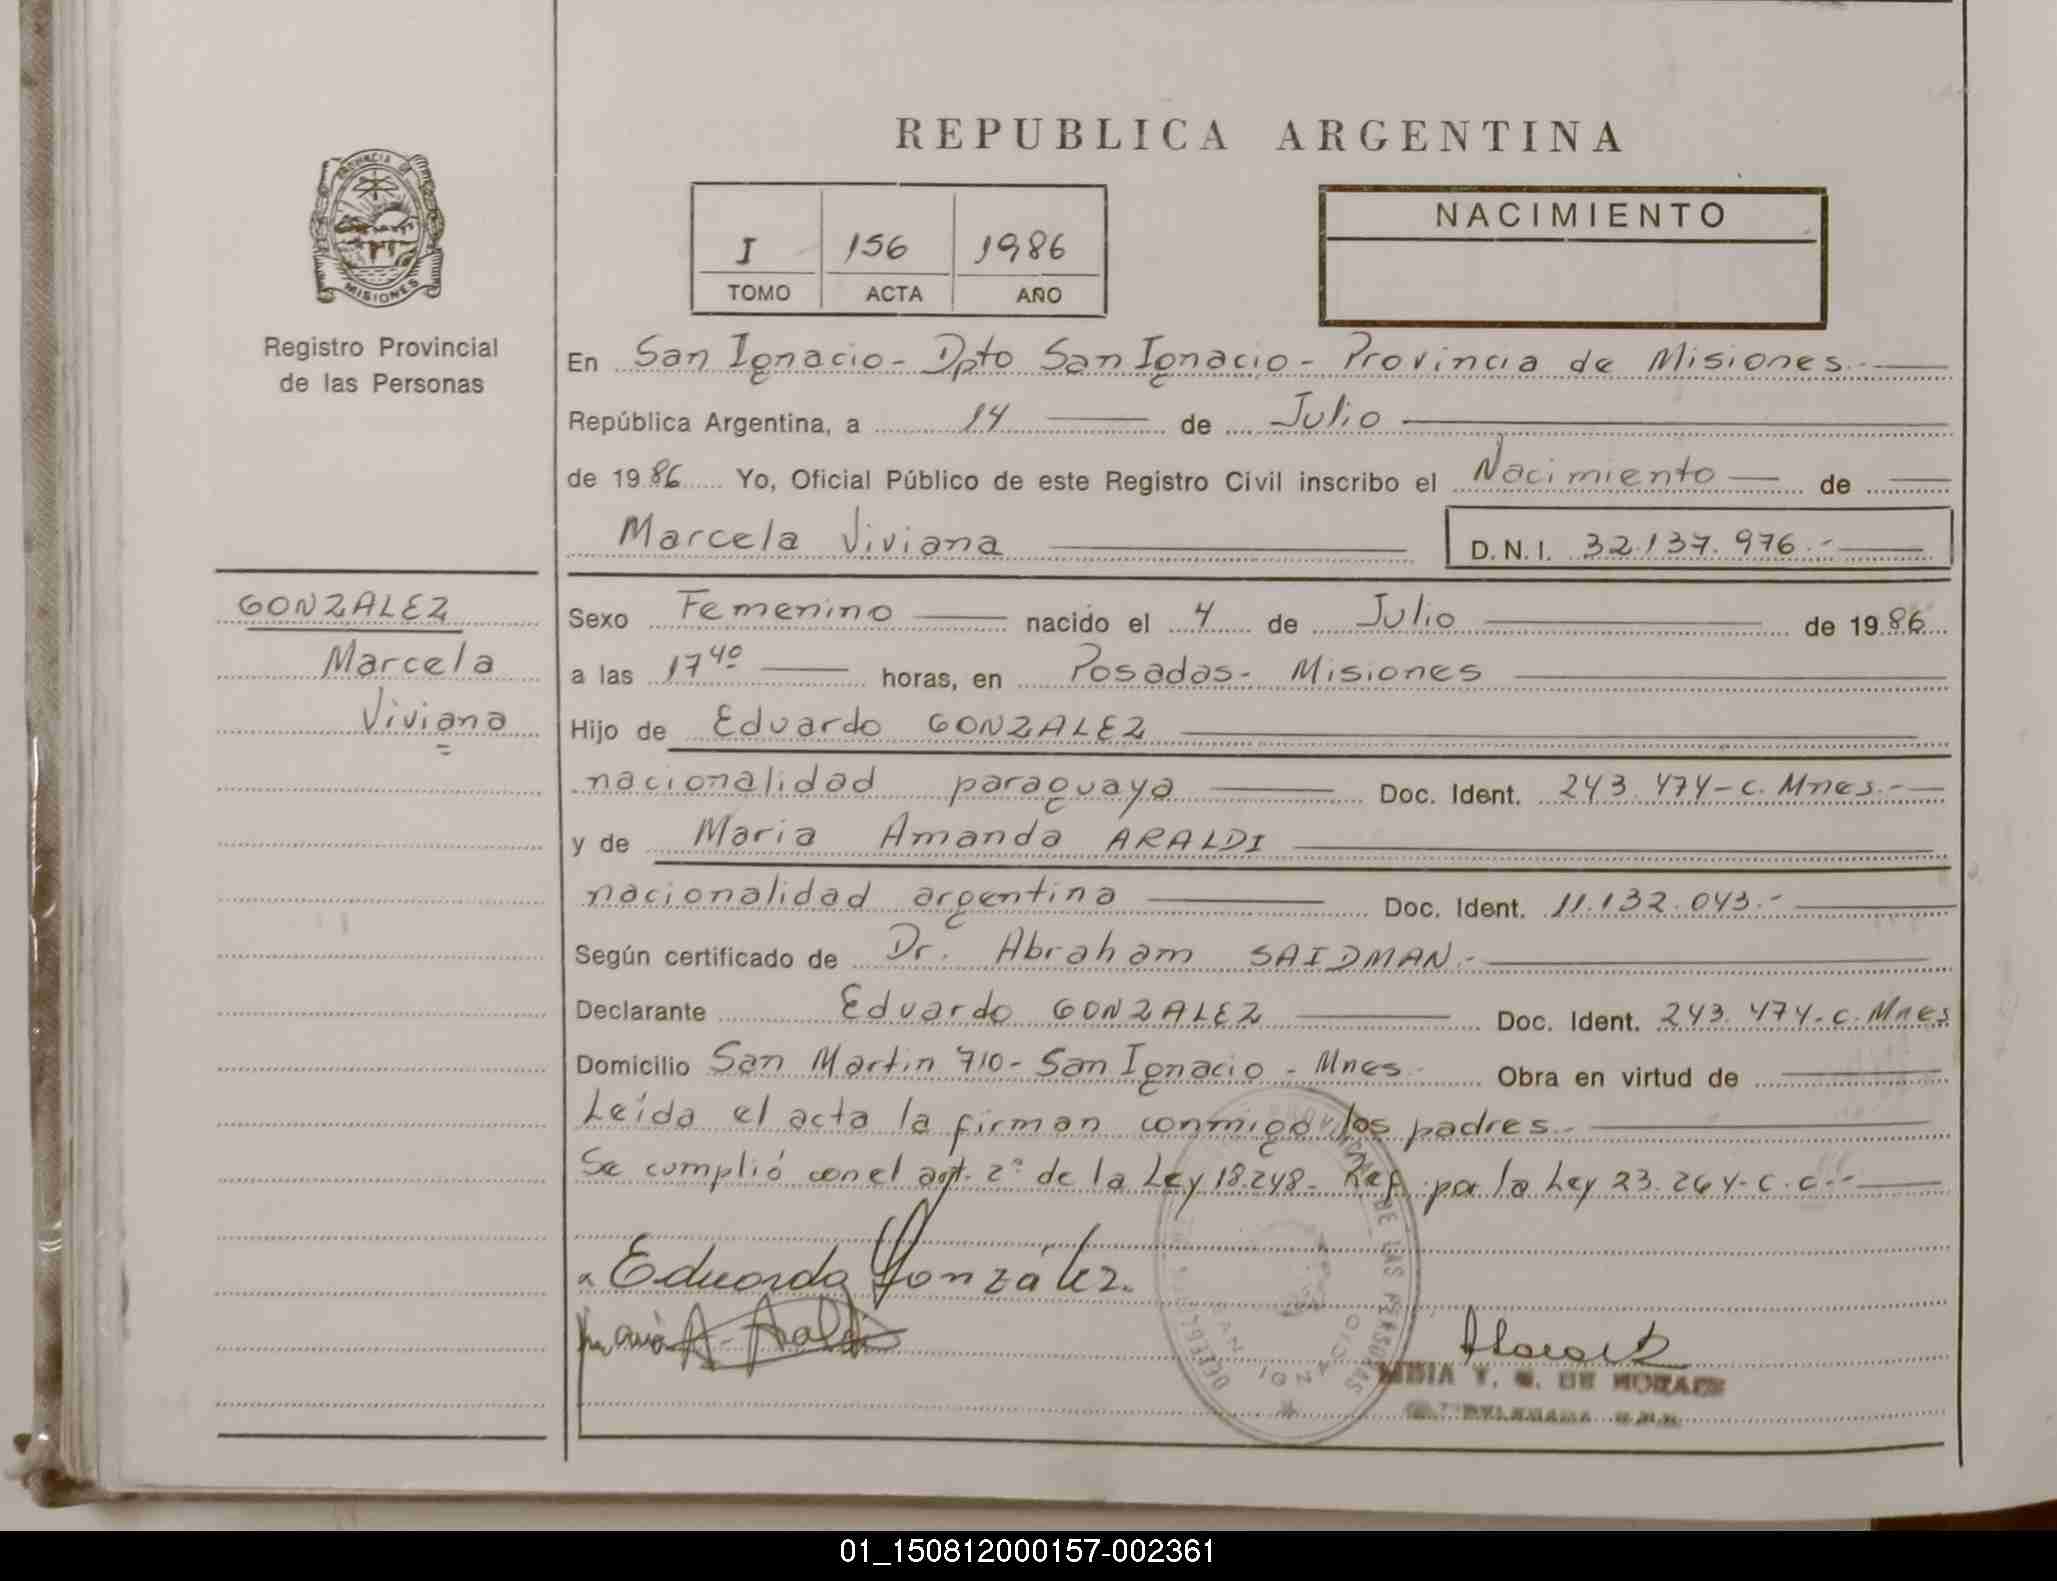 REPUBLICA ARGENTINA
PROVINCIA DE
MISIONES
Registro Provincial
de las Personas
I 156 1986
TOMO ACTA AÑO
NACIMIENTO
En San Ignacio - Dpto San Ignacio - Provincia de Misiones.-
República Argentina, a 14 de Julio
de 1986 Yo, Oficial Público de este Registro Civil inscribo el Nacimiento de
Marcela Viviana D.N.I. 32.137.976.-
GONZALEZ
Marcela
Viviana
Sexo Femenino nacido el 4 de Julio de 1986
a las 17 40 horas, en Posadas - Misiones
Hijo de Eduardo GONZALEZ
nacionalidad paraguaya Doc. Ident. 243.474-c. Mnes.-
y de Maria Amanda ARALDI
nacionalidad argentina Doc. Ident. 11.132.043.-
Según certificado de Dr. Abraham SAIDMAN.-
Declarante Eduardo GONZALEZ Doc. Ident. 243.474-c. Mnes
Domicilio San Martin 710 - San Ignacio - Mnes. Obra en virtud de
Leída el acta la firman conmigo los padres.-
Se cumplió con el art. 2° de la Ley 18.248. Ref. por la Ley 23.264-c.c.-
Eduardo González.
Maria A. Araldi
DE LAS PERSONAS
SAN IGNACIO
DE MORAES
01_150812000157-002361